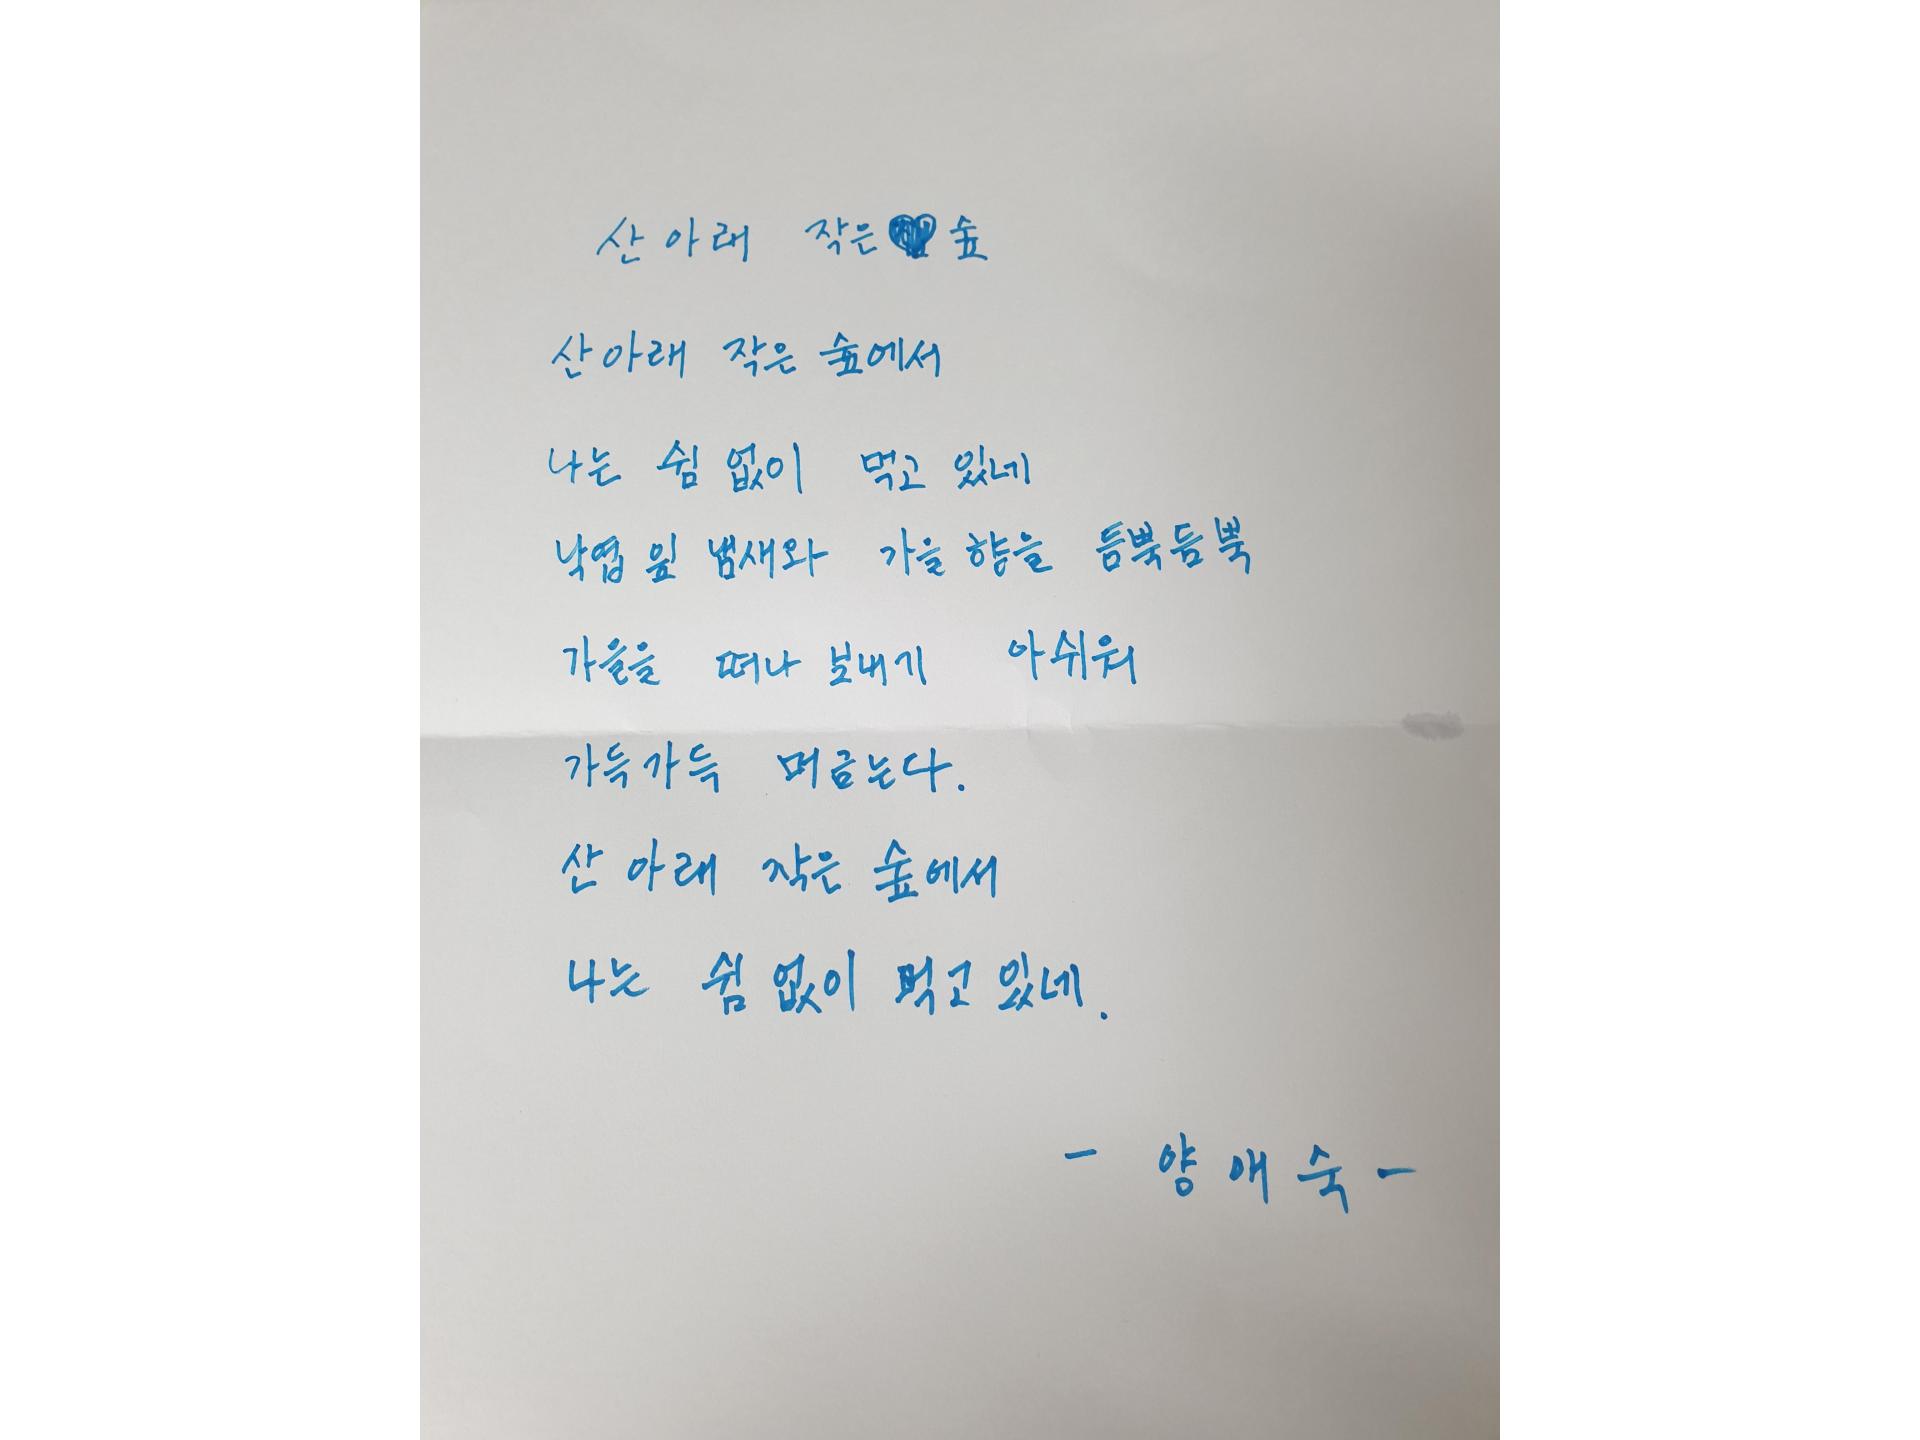 산 아래 작은 숲
산아래 작은 숲에서
나는 쉼 없이 먹고 있네
낙엽 잎 냄새와 가을 향을 듬뿍듬뿍
가을을 떠나 보내기 아쉬워
가득가득 머금는다.
산 아래 작은 숲에서
나는 쉼 없이 먹고 있네.
- 양애숙 -